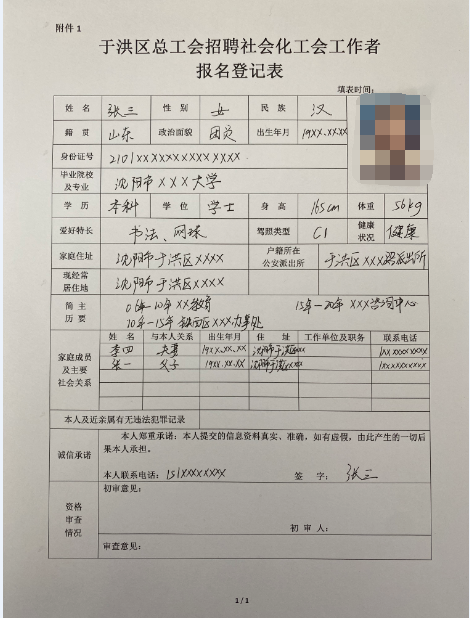 附件 1
于洪区总工会招聘社会化工会工作者
报名登记表
填表时间:
姓 名 张三 性 别 女 民 族 汉
籍 贯 山东 政治面貌 团员 出生年月 19XX.XX.XX
身份证号 2101XXXXXXXXXX XXXX
毕业院校及专业 沈阳市XXX大学
学 历 本科 学 位 学士 身 高 165cm 体重 56kg
爱好特长 书法、网球 驾照类型 C1 健康状况 健康
家庭住址 沈阳市于洪区XXXX 户籍所在公安派出所 于洪区XXX派出所
现经常居住地 沈阳市于洪区XXXX
简 主 06年-10年XX教育 15年-20年 XXX咨询中心
历 要 10年-15年 区XXX办事处
姓 名 与本人关系 出生年月 住 址 工作单位及职务 联系电话
家庭成员及主要社会关系
李四 夫妻 19XX.XX.XX 沈阳市于洪区XXX 1XXXXXXXXXX
张一 父子 19XX.XX.XX 沈阳市于洪区XXX 1XXXXXXXXXX
本人及近亲属有无违法犯罪记录
诚信承诺
本人郑重承诺:本人提交的信息资料真实、准确,如有虚假,由此产生的一切后
果本人承担。
本人联系电话:151XXXXXXXX 签 字: 张三
资格审查情况
初审意见:
初 审 人:
审查意见:
1 / 1